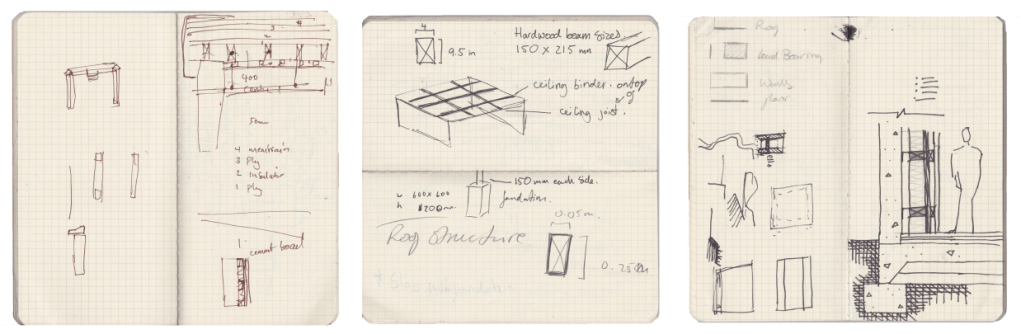 400
50mm
4 membrain
3 Ply
2 Insulator
1 Ply
cement board
4
9.5 in
Hardwood beam sizes.
150 x 215 mm
ceiling binder. ontop
of
ceiling joist.
150 mm each side.
foundation.
600x600
h
Roof Structure
0.05 m.
Roof
Load Bearing
Walls
floor